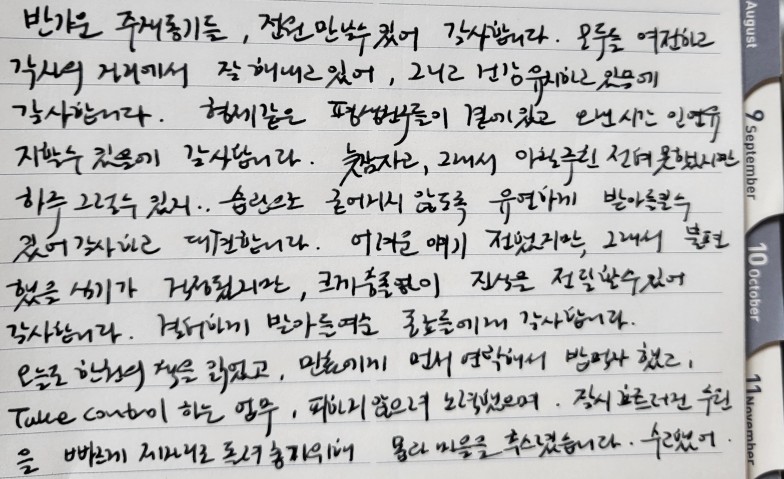 반가운 주재동기들, 전원 만날수 있어 감사합니다. 모두들 여전하고
각자의 거기에서 잘 해내고 있어, 그리고 건강 유지하고 있음에
감사합니다. 형제같은 평생벗들이 곁에 있고 오랜시간 인연유
지할수 있음에 감사합니다. 늦잠자고, 그래서 아침주힌 전혀 못했지만
하루 그럴수 있지.. 습관으로 굳어지지 않도록 유연하게 받아들일수
있어 감사하고 대견합니다. 어려운 얘기 전했지만, 그래서 불편
했을 상기가 걱정됬지만, 크게 충돌없이 진심을 전달할수 있어
감사합니다. 겸허하게 받아들여준 동료들에게 감사합니다.
오늘도 한권의 책을 읽었고, 먼저 연락해서 밥먹자 했고,
Take control 하는 업무, 피하지 않으려 노력했으며. 잠시 흐트러진 수면
을 빠르게 제자리로 돌려놓기위해 몸과 마음을 추스렸습니다. 수고했어.
August
9 September
10 October
11 November